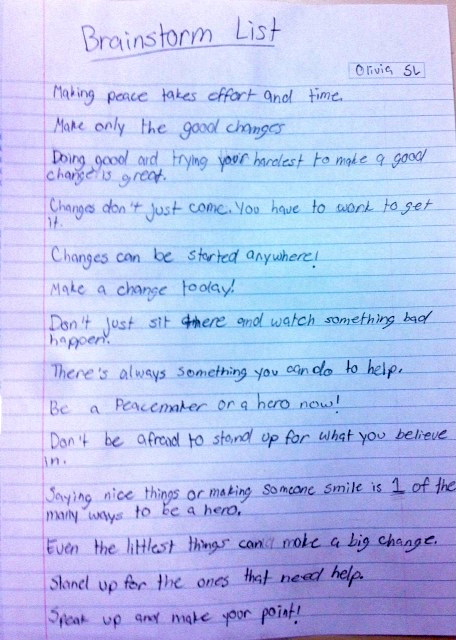 Brainstorm List
Olivia SL
Making peace takes effort and time.
Make only the good changes
Doing good and trying your hardest to make a good
change is great.
Changes don't just come. You have to work to get
it.
Changes can be started anywhere!
Make a change today!
Don't just sit there and watch something bad
happen.
There's always something you can do to help.
Be a Peacemaker or a hero now!
Don't be afraid to stand up for what you believe
in.
Saying nice things or making someone smile is 1 of the
many ways to be a hero.
Even the littlest things can make a big change.
Stand up for the ones that need help.
Speak up and make your point!